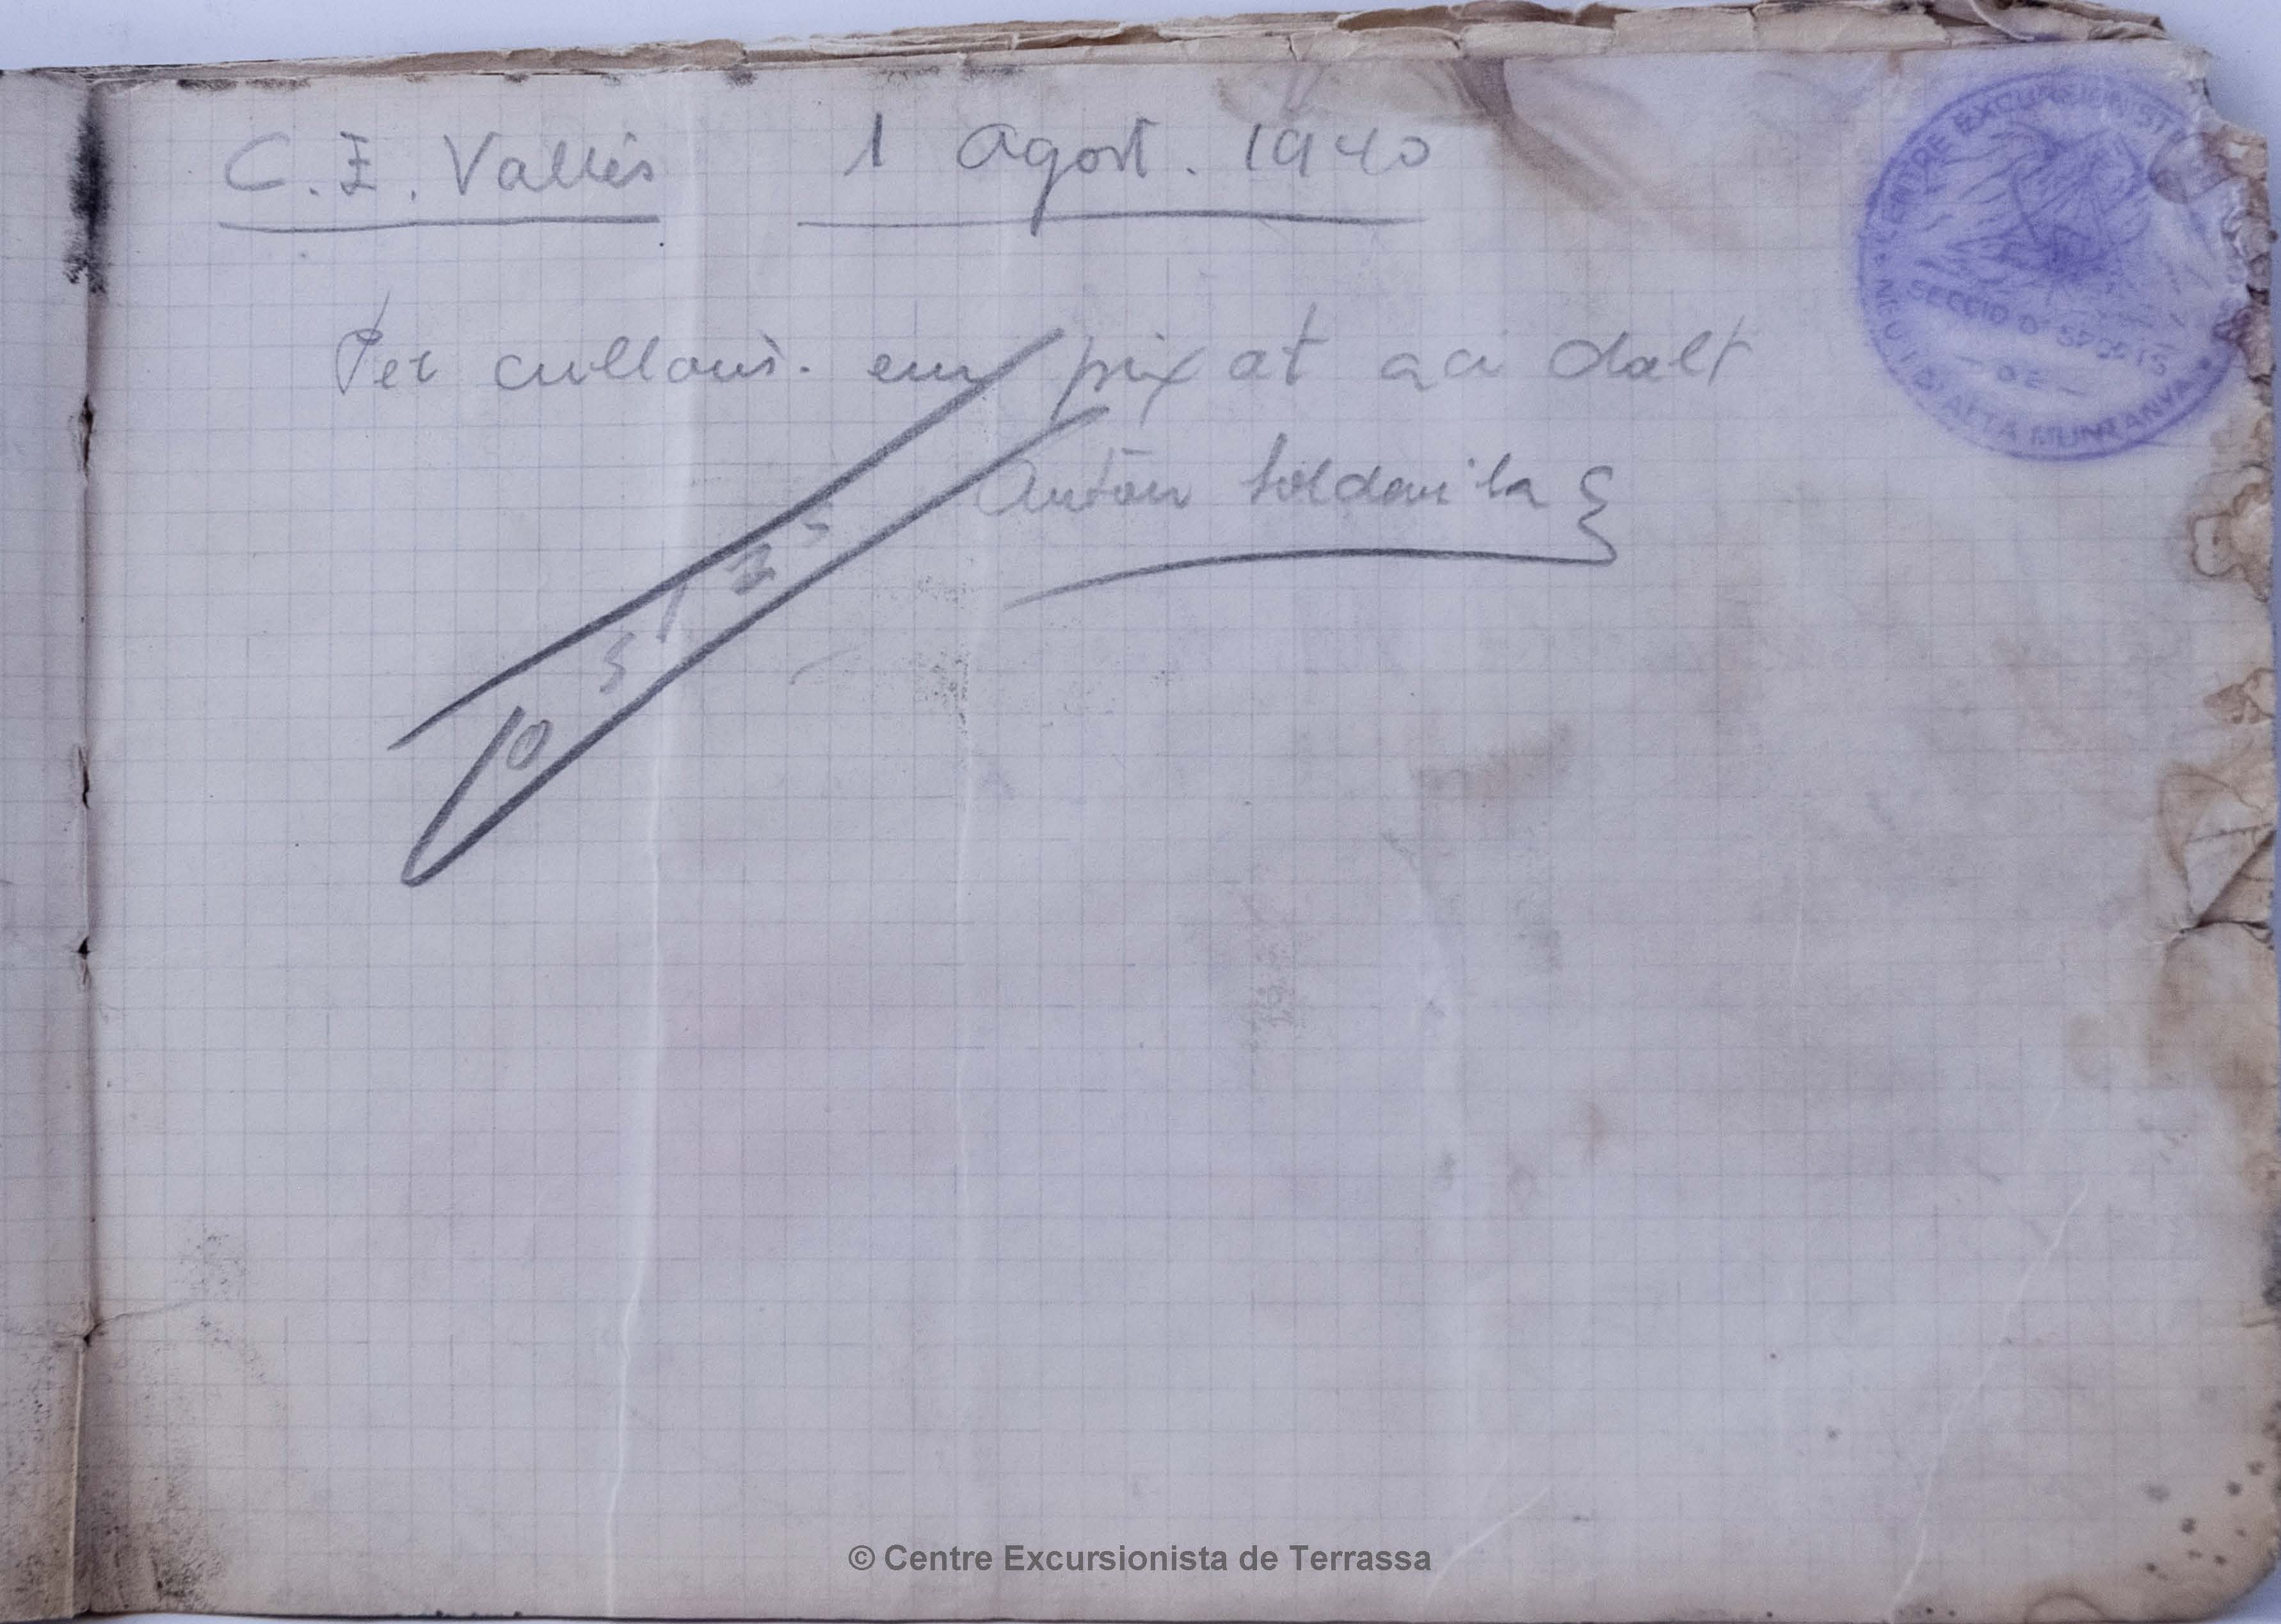 C.E. Vallés 1 Agost. 1940
Per cullons. em pixat aci dalt
Anton Soldevila
10
CENTRE EXCURSIONISTA
SECCIO D'ESPORTS
DE
NEU I D'ALTA MUNTANYA
© Centre Excursionista de Terrassa